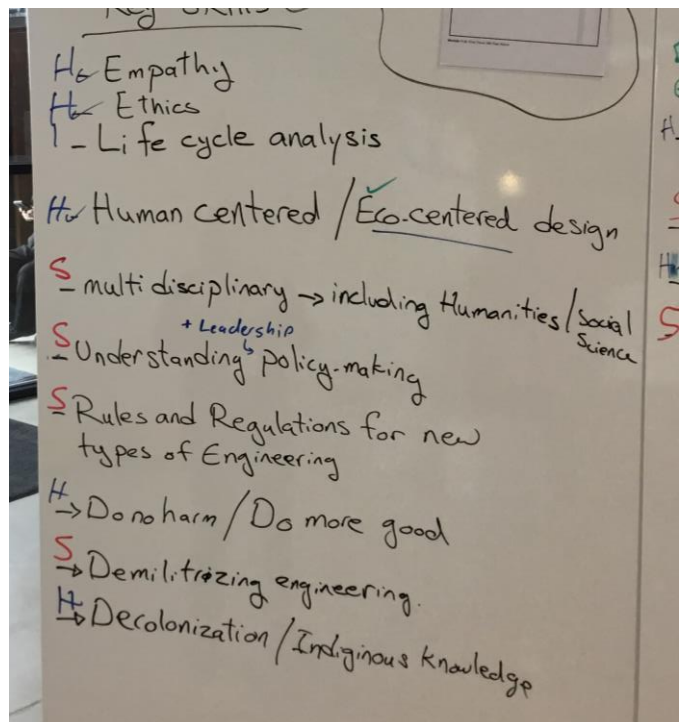 Key Skills
H Empathy
H Ethics
I - Life cycle analysis
H Human centered / Eco-centered design
S - multi disciplinary → including Humanities / Social Science
+ Leadership
S - Understanding policy-making
S - Rules and Regulations for new
types of Engineering
H → Do no harm / Do more good
S → Demilitrizing engineering.
H → Decolonization / Indiginous knowledge
S
H
S